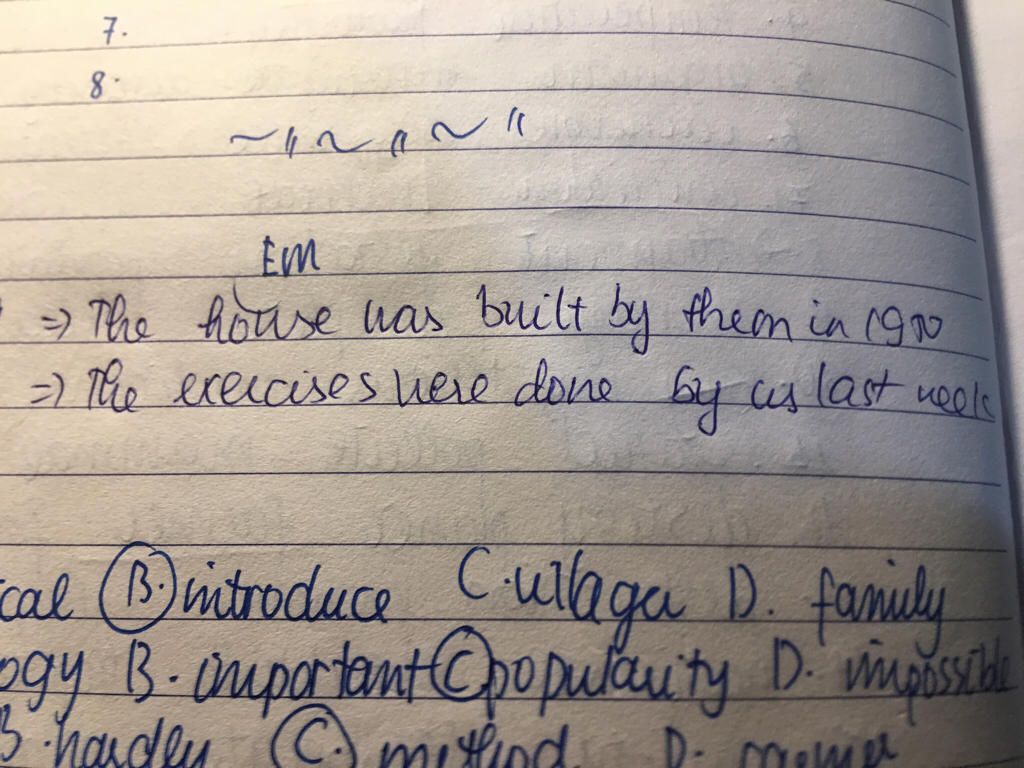 7.
8.
~ " ~ " ~ "
Em
=> The house was built by them in 1970
=> The exercises were done by us last week
cal B. introduce C. villager D. family
ogy B. important C. popularity D. impossible
B. harden C. method D.